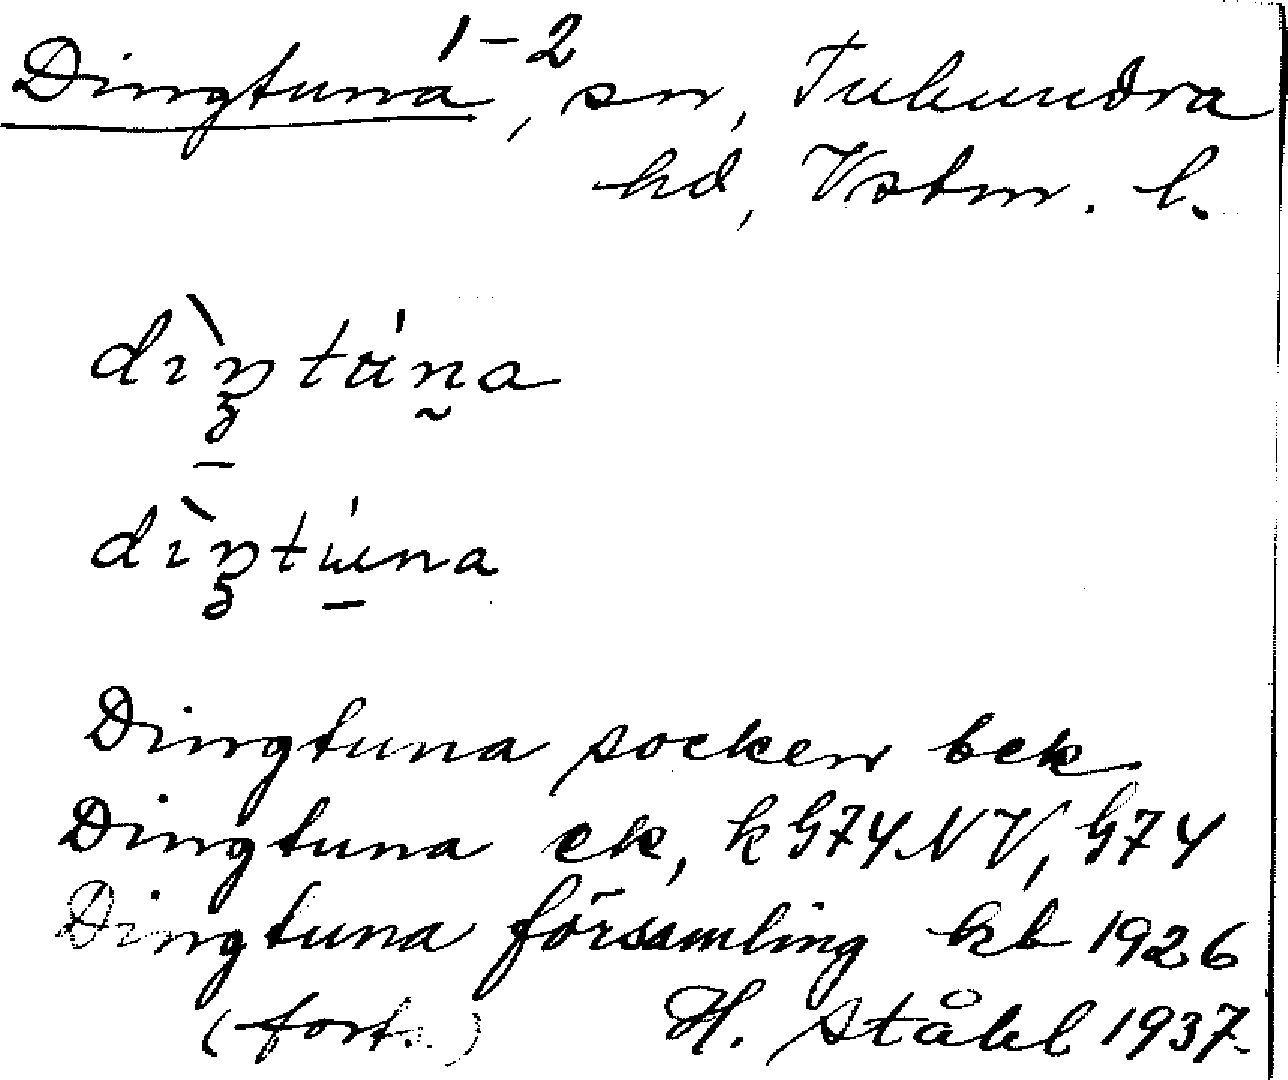 Dingtuna 1-2, sn, Tuhundra
hd, Vstm. l.
Dingtuna socken bek
Dingtuna ek, k G74NV, G74
Dingtuna församling kb 1926
(forts.) H. Ståhl 1937.